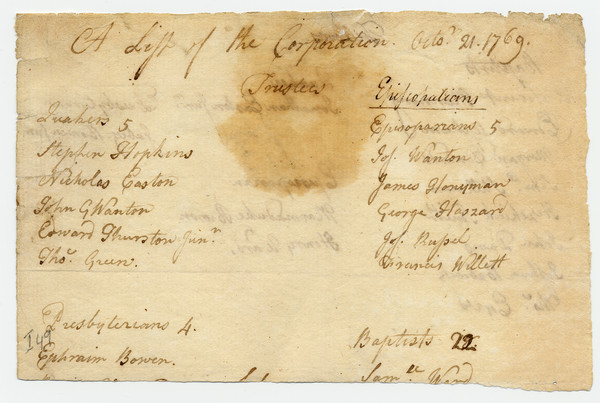 A List of the Corporation. Octoʳ 21. 1769.
Trustees
Quakers 5
Stephen Hopkins
Nicholas Easton
John G Wanton
Edward Thurston Junʳ
Thoˢ Green.
Presbyterians 4.
I 49
Ephraim Bowen.
Episcopalians
Episoparians 5
Joſ. Wanton
James Honyman
George Hazzard
Joſ. Russel
Francis Willett
Baptists 22
Samˡˡ Ward